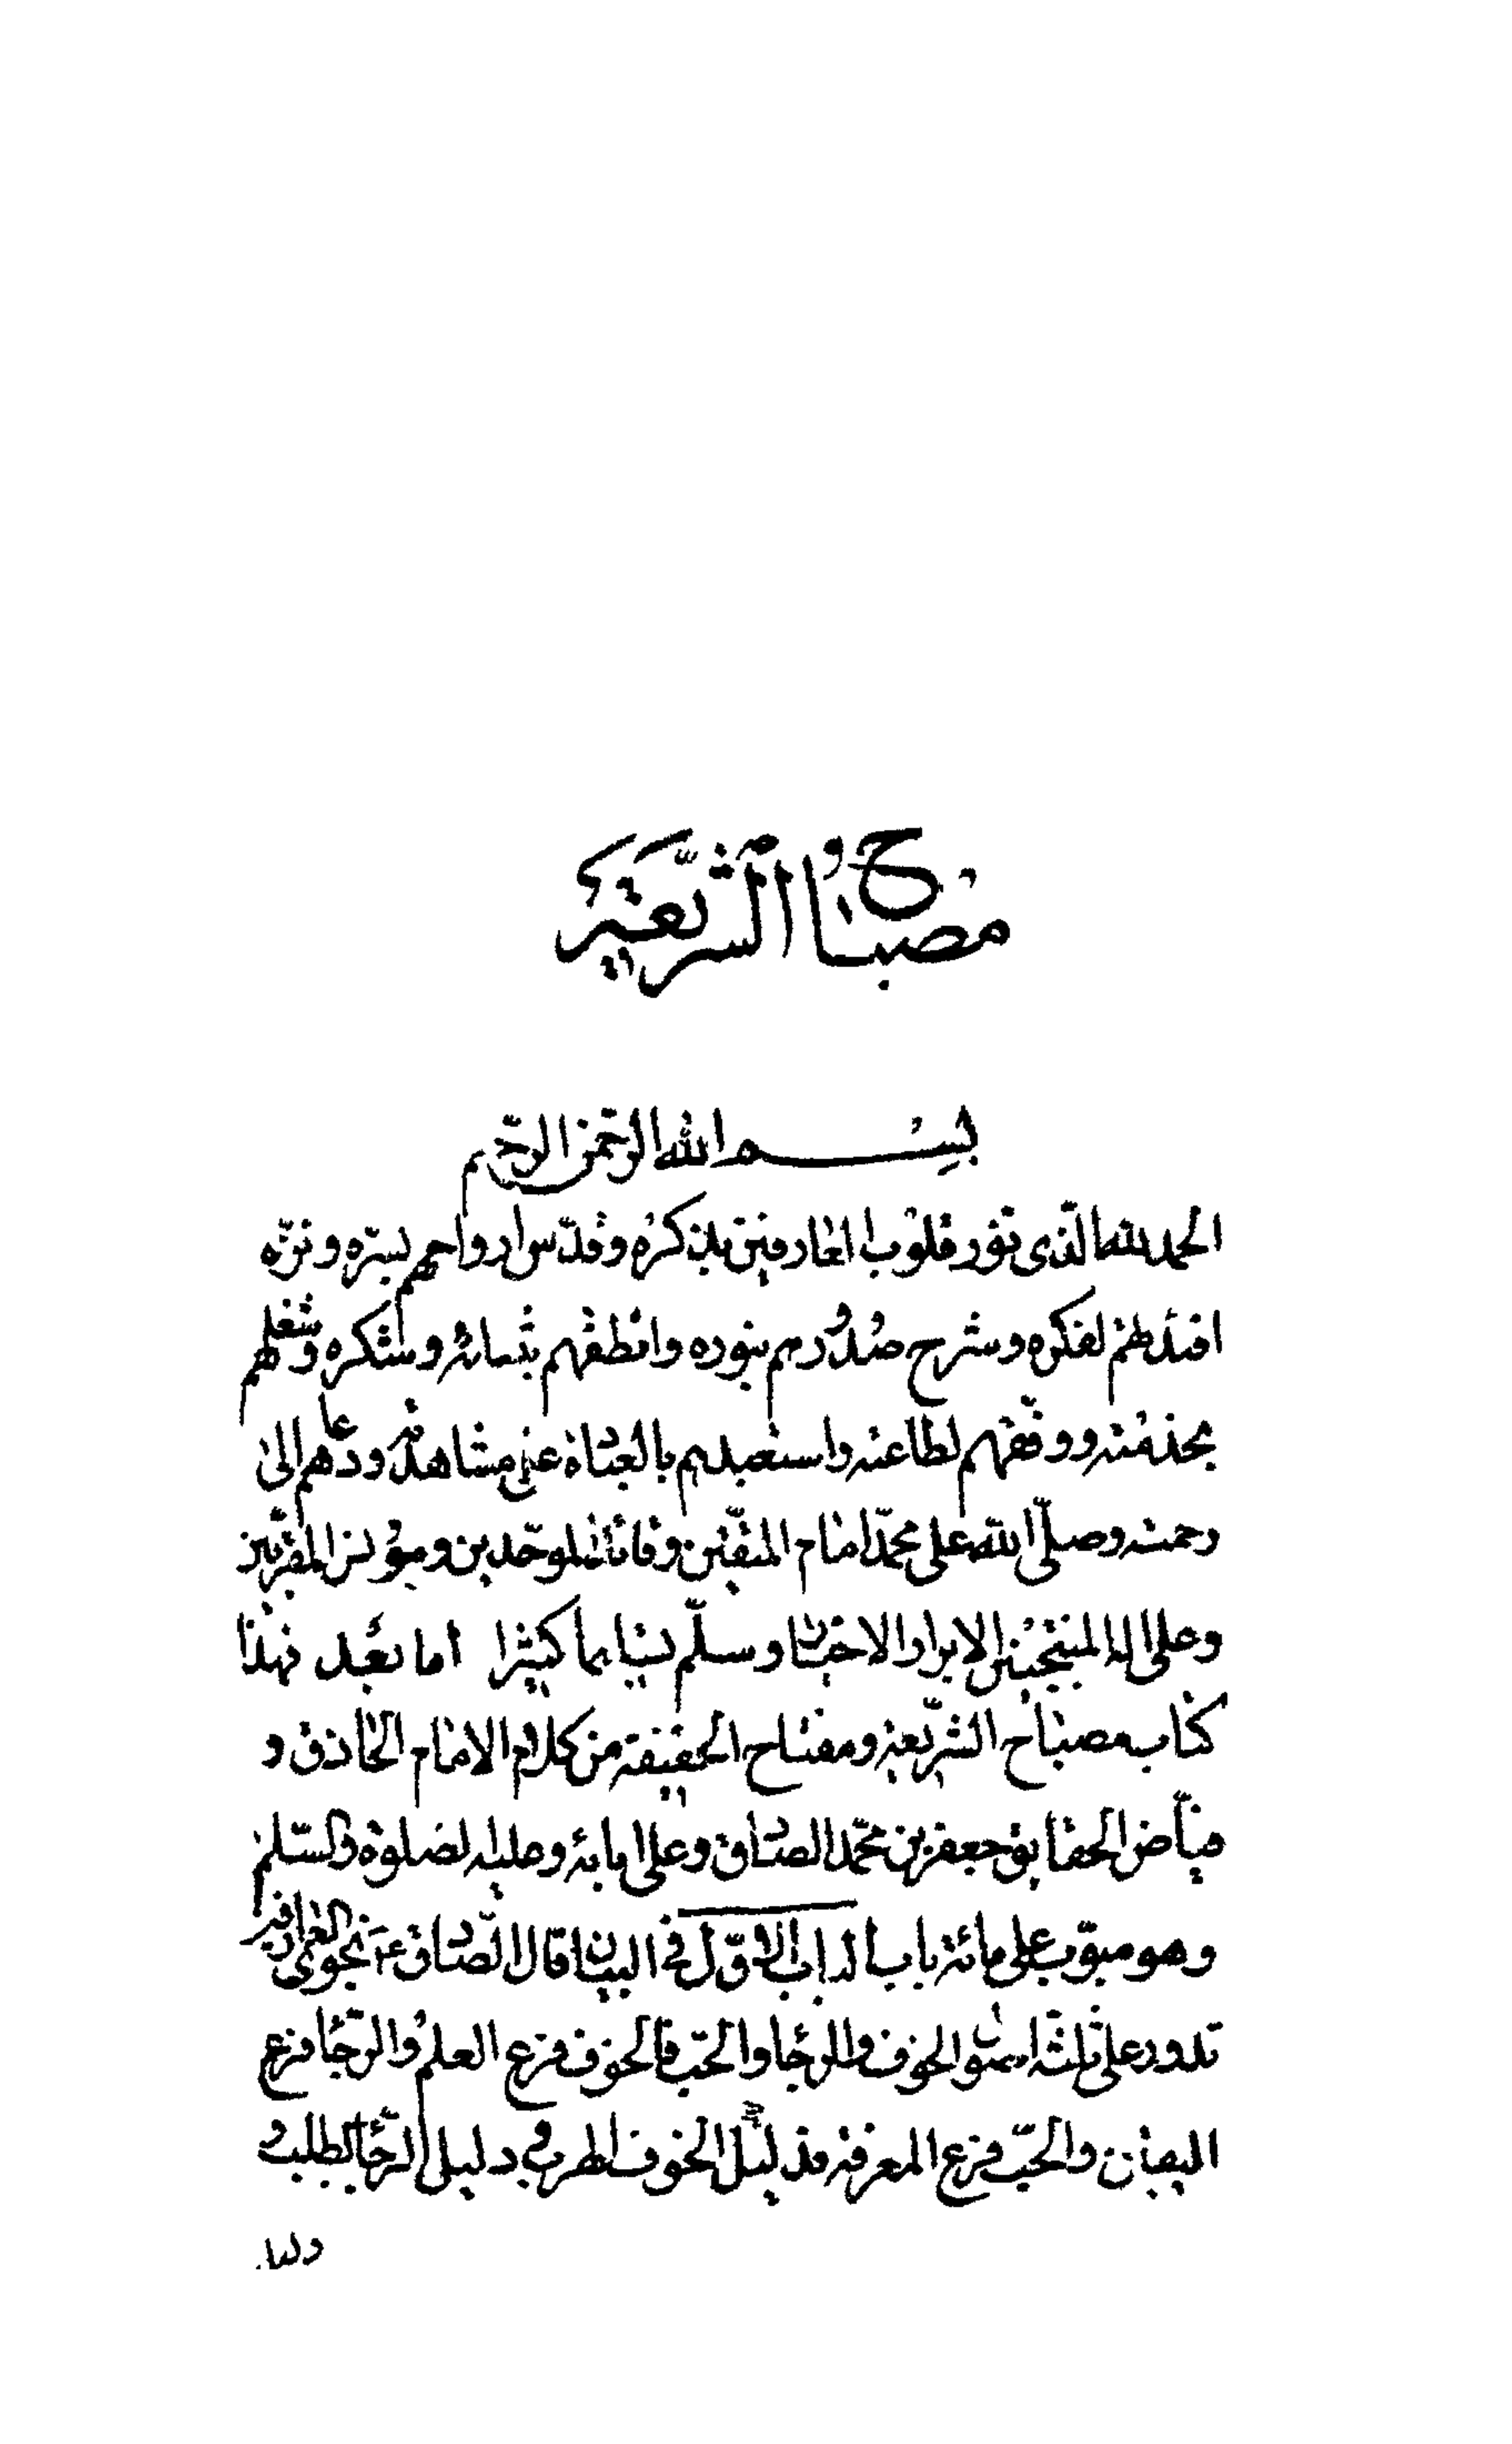 مصباح الشريعة
بسم الله الرحمن الرحيم
الحمد لله الذى نور قلوب العارفين بذكره وقدس ارواحهم بسره ونزه
افئدتهم لفكره وشرح صدورهم بنوره وانطقهم بثنائه وشكره وشغلهم
بخدمته ووفقهم لطاعته واستعبدهم بالعبادة على مشاهدته ودعاهم الى
رحمته وصلى الله على محمد امام المتقين وقائد الموحدين ومونس المقربين
وعلى اله المنتجبين الابرار الاخيار وسلم تسليما كثيرا اما بعد فهذا
كتاب مصباح الشريعة ومفتاح الحقيقة من كلام الامام الحاذق و
فياض الحقايق جعفر بن محمد الصادق وعلى ابائه وعليه الصلوة والسلم
وهو مبوب على مائة باب الباب الاول فى البيان قال الصادق ع نجوى العارفين
تدور على ثلثة اصول الخوف والرجا والحب فالخوف فرع العلم والرجا فرع
اليقين والحب فرع المعرفة فدليل الخوف الهرب و دليل الرجا الطلب و